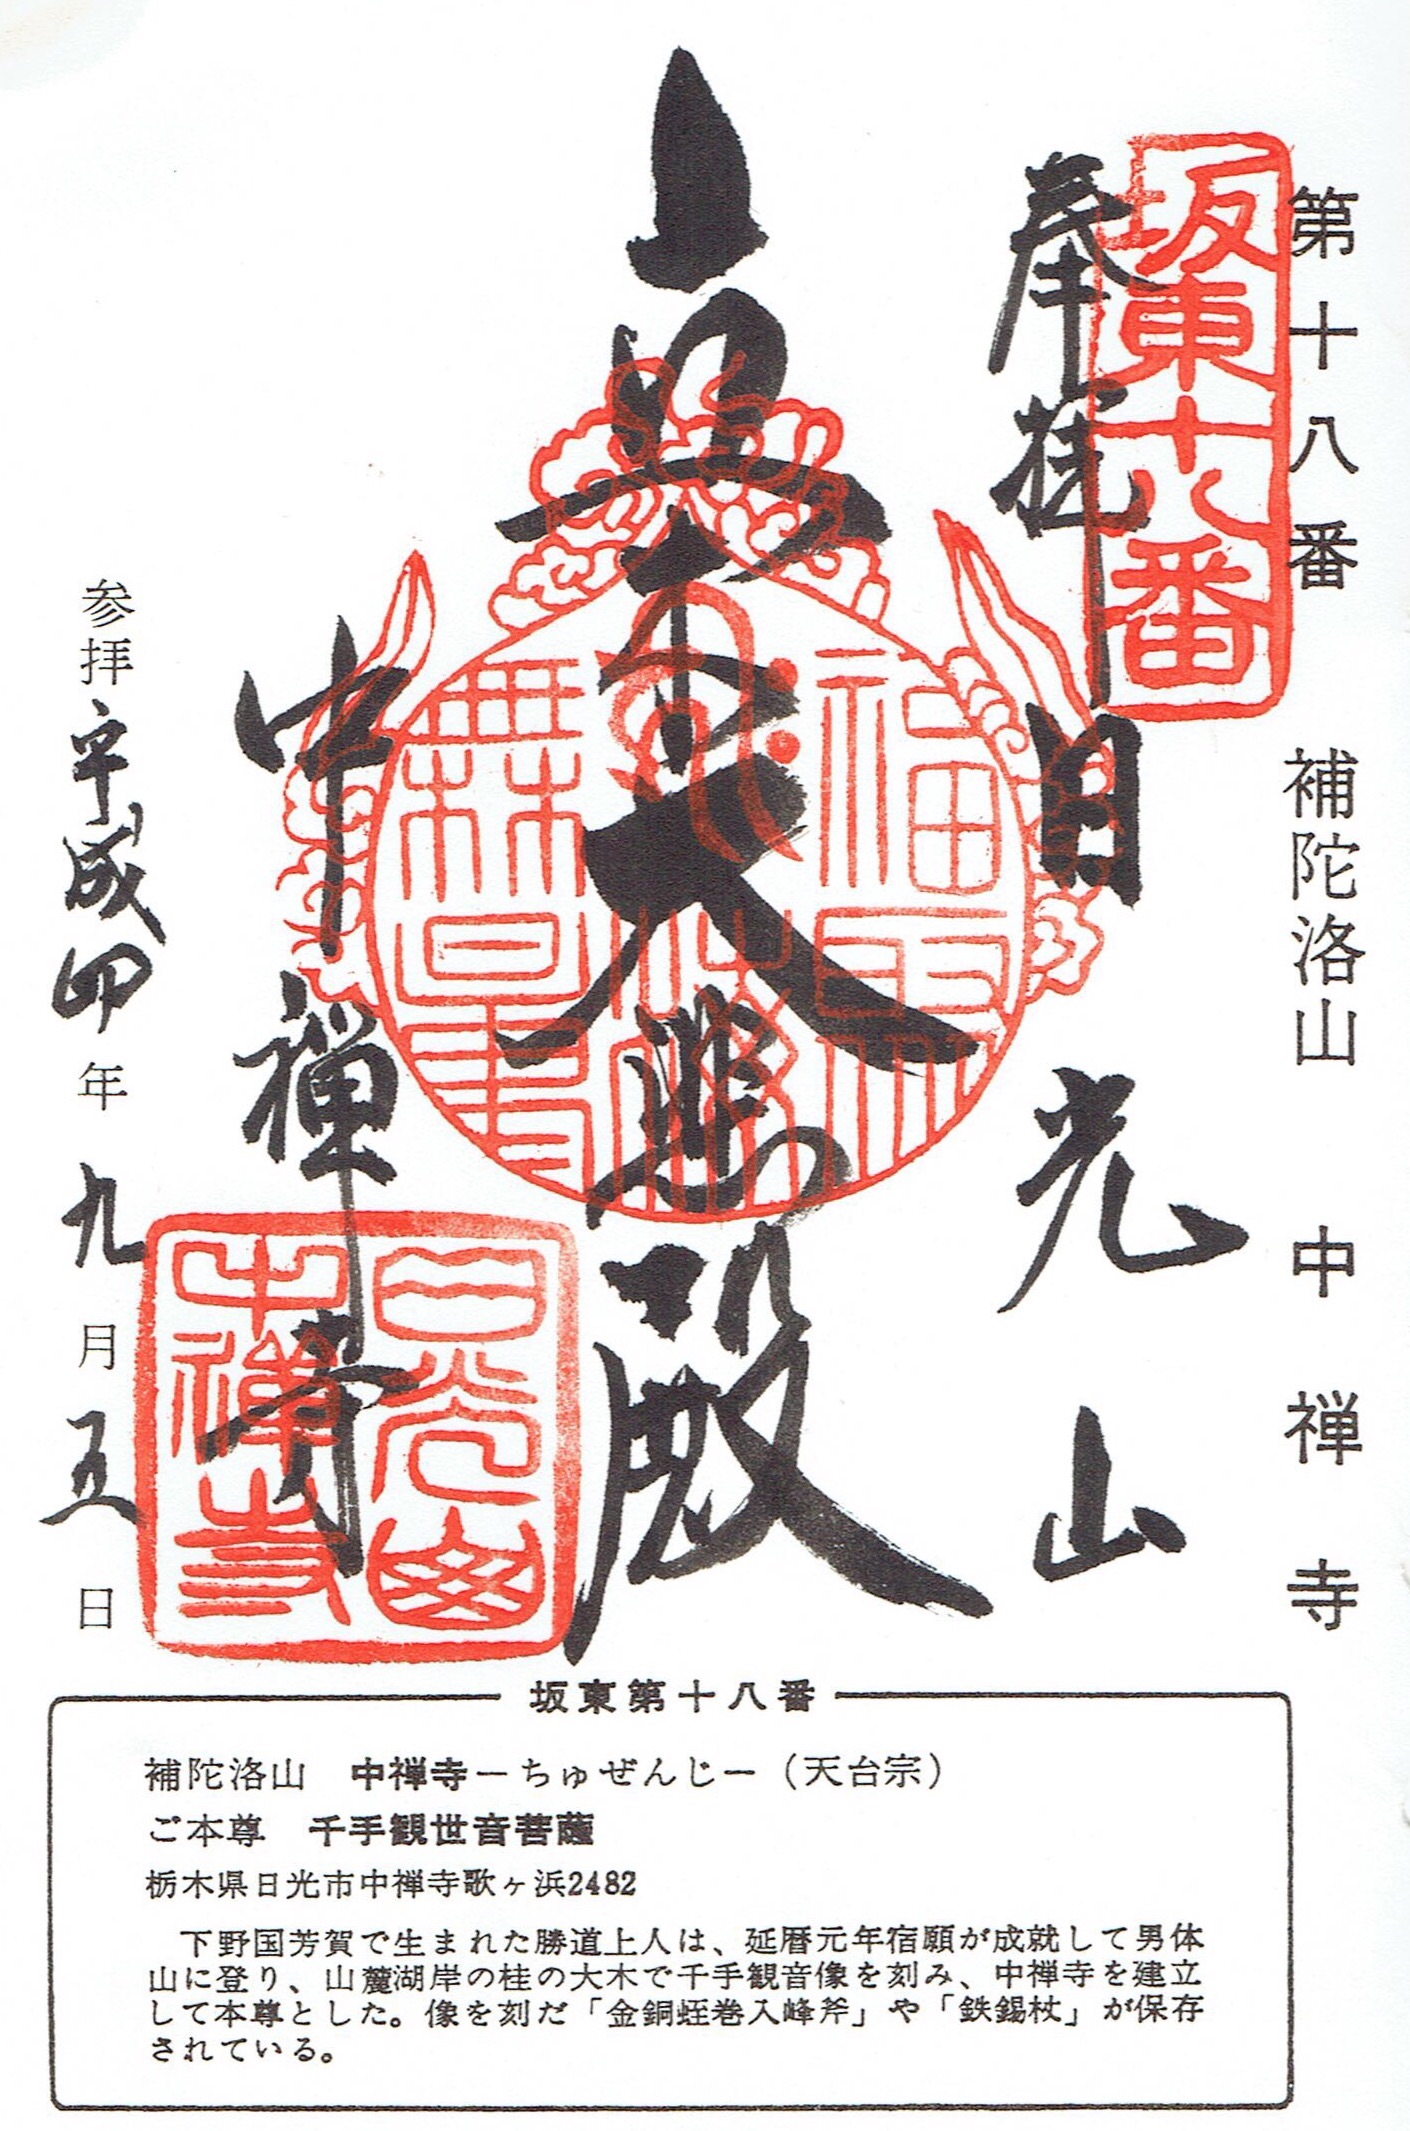 第十八番 補陀洛山 中禅寺
坂東十八番
奉拝
日光山
立木大悲殿
中禅寺
日光山
中禅寺
参拝平成四年九月五日
坂東第十八番
補陀洛山 中禅寺ーちゅぜんじー(天台宗)
ご本尊 千手観世音菩薩
栃木県日光市中禅寺歌ヶ浜2482
下野国芳賀で生まれた勝道上人は、延暦元年宿願が成就して男体
山に登り、山麓湖岸の桂の大木で千手観音像を刻み、中禅寺を建立
して本尊とした。像を刻だ「金銅蛭巻入峰斧」や「鉄錫杖」が保存
されている。